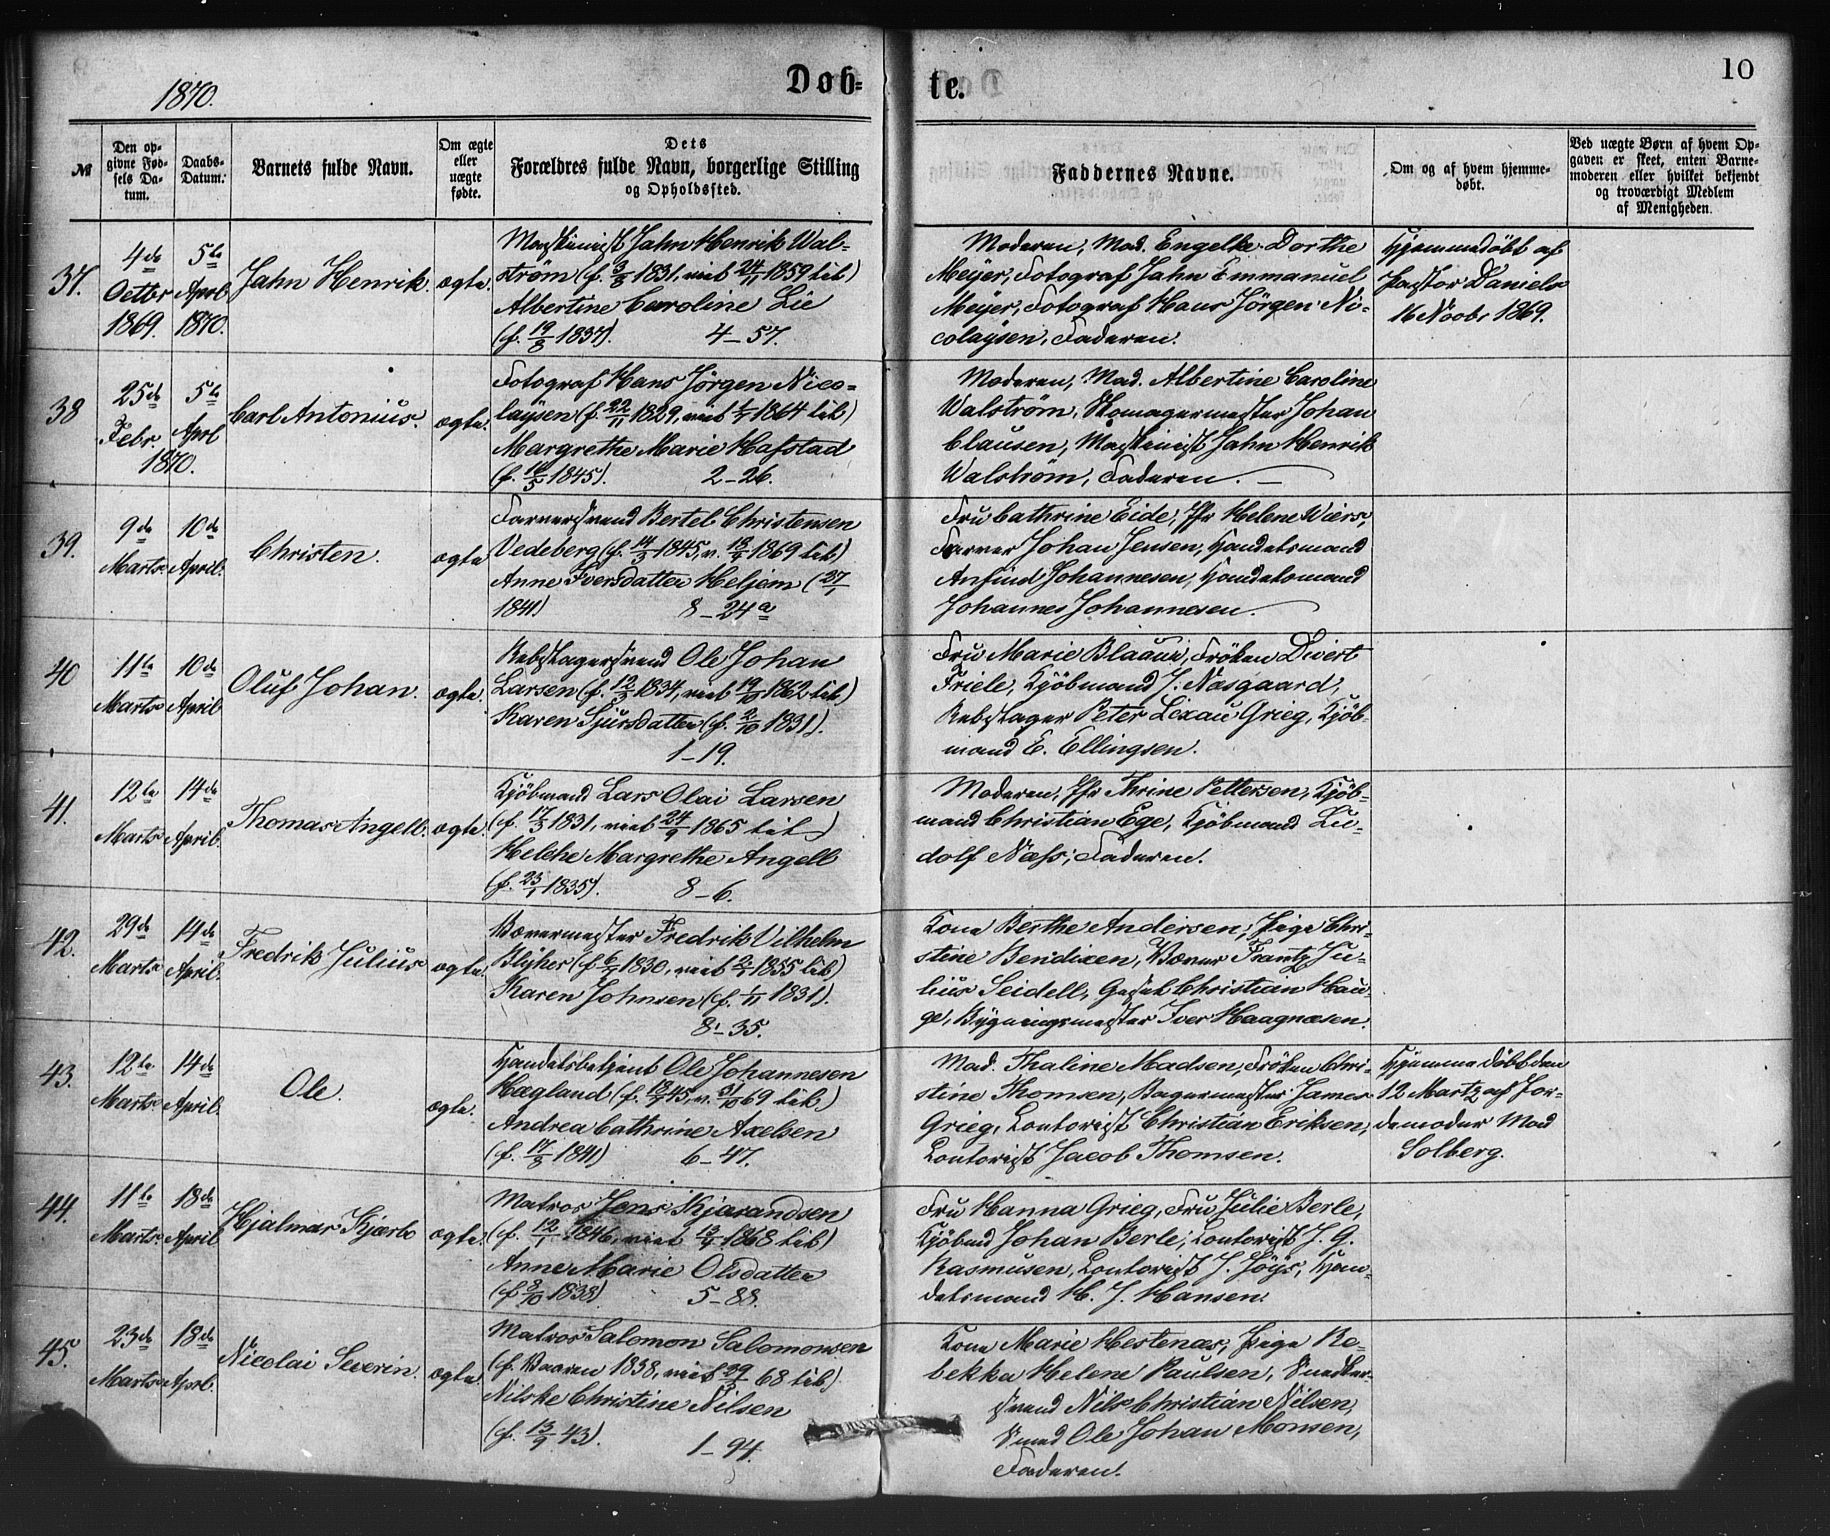 1870.
Døb-
te.
10
№
Den op-
givne Fød-
sels Da-
tum.
Daabs-
Datum.
Barnets fulde Navn.
Om ægte
eller
uægte
fødte.
Dets
Forældres fulde Navn, borgerlige Stilling
og Opholdssted.
Faddernes Navne.
Om og af hvem hjemme-
døbt.
Ved uægte Børn af hvem Op-
gaven er skeet, enten Barne-
moderen eller hvilket bekjendt
og troværdigt Medlem
af Menigheden.
37.
4de
Octbr
1869.
5te
Aprl
1870.
Jahn Henrik.
ægte.
Maskinist Jahn Henrik Wal-
ström (f. 3/8 1831, viet 24/11 1859 til)
Albertine Caroline Lie
(f. 19/8 1837). 4-57.
Moderen, Mad. Engelke Dorthe
Meyer, Fotograf Jahn Emmanuel
Meyer, Fotograf Hans Jörgen Ni-
colaysen, Faderen.
Hjemmedöbt af
Pastor Daniels
16 Novbr 1869.
38
25de
Febr.
1870.
5te
Aprl
Carl Antonius.
ægte.
Fotograf Hans Jörgen Nico-
laysen (f. 22/11 1829, viet 1864 til)
Margrethe Marie Hafstad
(f. 1845). 2-26.
Moderen, Mad. Albertine Caroline
Walström, Skomagermester Johan
Clausen, Maskinist Jahn Henrik
Walström, Faderen.
39.
9de
Marts.
10de
April.
Christen.
ægte
Farversvend Bertel Christensen
Vedeberg (f. 14/3 1845, v. 18/7 1869 til)
Anne Iversdatter Heljem (27/1
1841) 8-24a
Fru Cathrine Eide, Jfr Helene Wiers,
Farver Johan Jensen, Handelsmand
Anfind Johannesen, Handelsmand
Johannes Johannesen.
40
11te
Marts
10de
April
Oluf Johan.
ægte.
Rebslagersvend Ole Johan
Larsen (f. 12/2 1834, viet 19/10 1862 til)
Karen Sjursdatter (f. 2/10 1831).
1-19.
Fru Marie Blaauw, Fröken Divert
Friele, Kjöbmand J. Næsgaard,
Rebslager Peter Lexau Grieg, Kjöb-
mand E. Ellingsen.
41.
12te
Marts
14de
April.
Thomas Angell.
ægte
Kjöbmand Lars Olai Larsen
(f. 17/3 1831, viet 24/9 1865 til)
Helche Margrethe Angell
(f. 23/1 1835). 8-6.
Moderen, Jfr Thrine Pettersen, Kjöb-
mand Christian Ege, Kjöbmand Lu-
dolf Næss, Faderen.
42.
29de
Marts
14de
April.
Fredrik Julius
ægte.
Bævermester Fredrik Vilhelm
Blyher (f. 1830, viet 1855 til)
Karen Johnsen (f. 1/11 1831).
8-35.
Kone Berthe Andersen, Pige Chri-
stine Bendixen, Væver Frantz Ju-
lius Seidell, Gesel Christian Hau-
ge, Bygningsmester Iver Haagnæsen.
43.
12te
Marts
14de
April.
Ole.
ægte.
Handelsbetjent Ole Johannesen
Hægland (f. 45, v. 31/10 69 til)
Andrea Cathrine Axelsen
(f. 17/8 1841) 6-47.
Mad. Thaline Madsen, Fröken Chri-
stine Thomsen, Bagermester James
Grieg, Contorist Christian Eriksen,
Contorist Jacob Thomsen.
Hjemmedöbt den
12 Marts af Jor-
demoder Mad
Solberg.
44.
11te
Marts.
18de
April
Hjalmar Kjærbo
ægte.
Matros Jens Kjarandsen
(f. 12/1 1846, viet 1868 til)
Anne Marie Olsdatter
(f. 2/10 1838) 5-88.
Fru Hanna Grieg, Fru Julie Berle,
Kjöbmd Johan Berle, Contorist J. G.
Rasmusen, Contorist J. Höys, Han-
delsmand H. J. Hansen.
45.
23de
Marts
18de
Aprl.
Nicolai Severin.
ægte.
Matros Salomon Salomonsen
(f. Vaaren 1838, viet 29/3 68 til)
Nilske Christine Nilsen
(f. 13/9 43). 1-94.
Kone Marie Hestenæs, Pige Re-
bekka Helene Paulsen, Snedker-
svend Nils Christian Nilsen,
Smed Ole Johan Monsen,
Faderen.